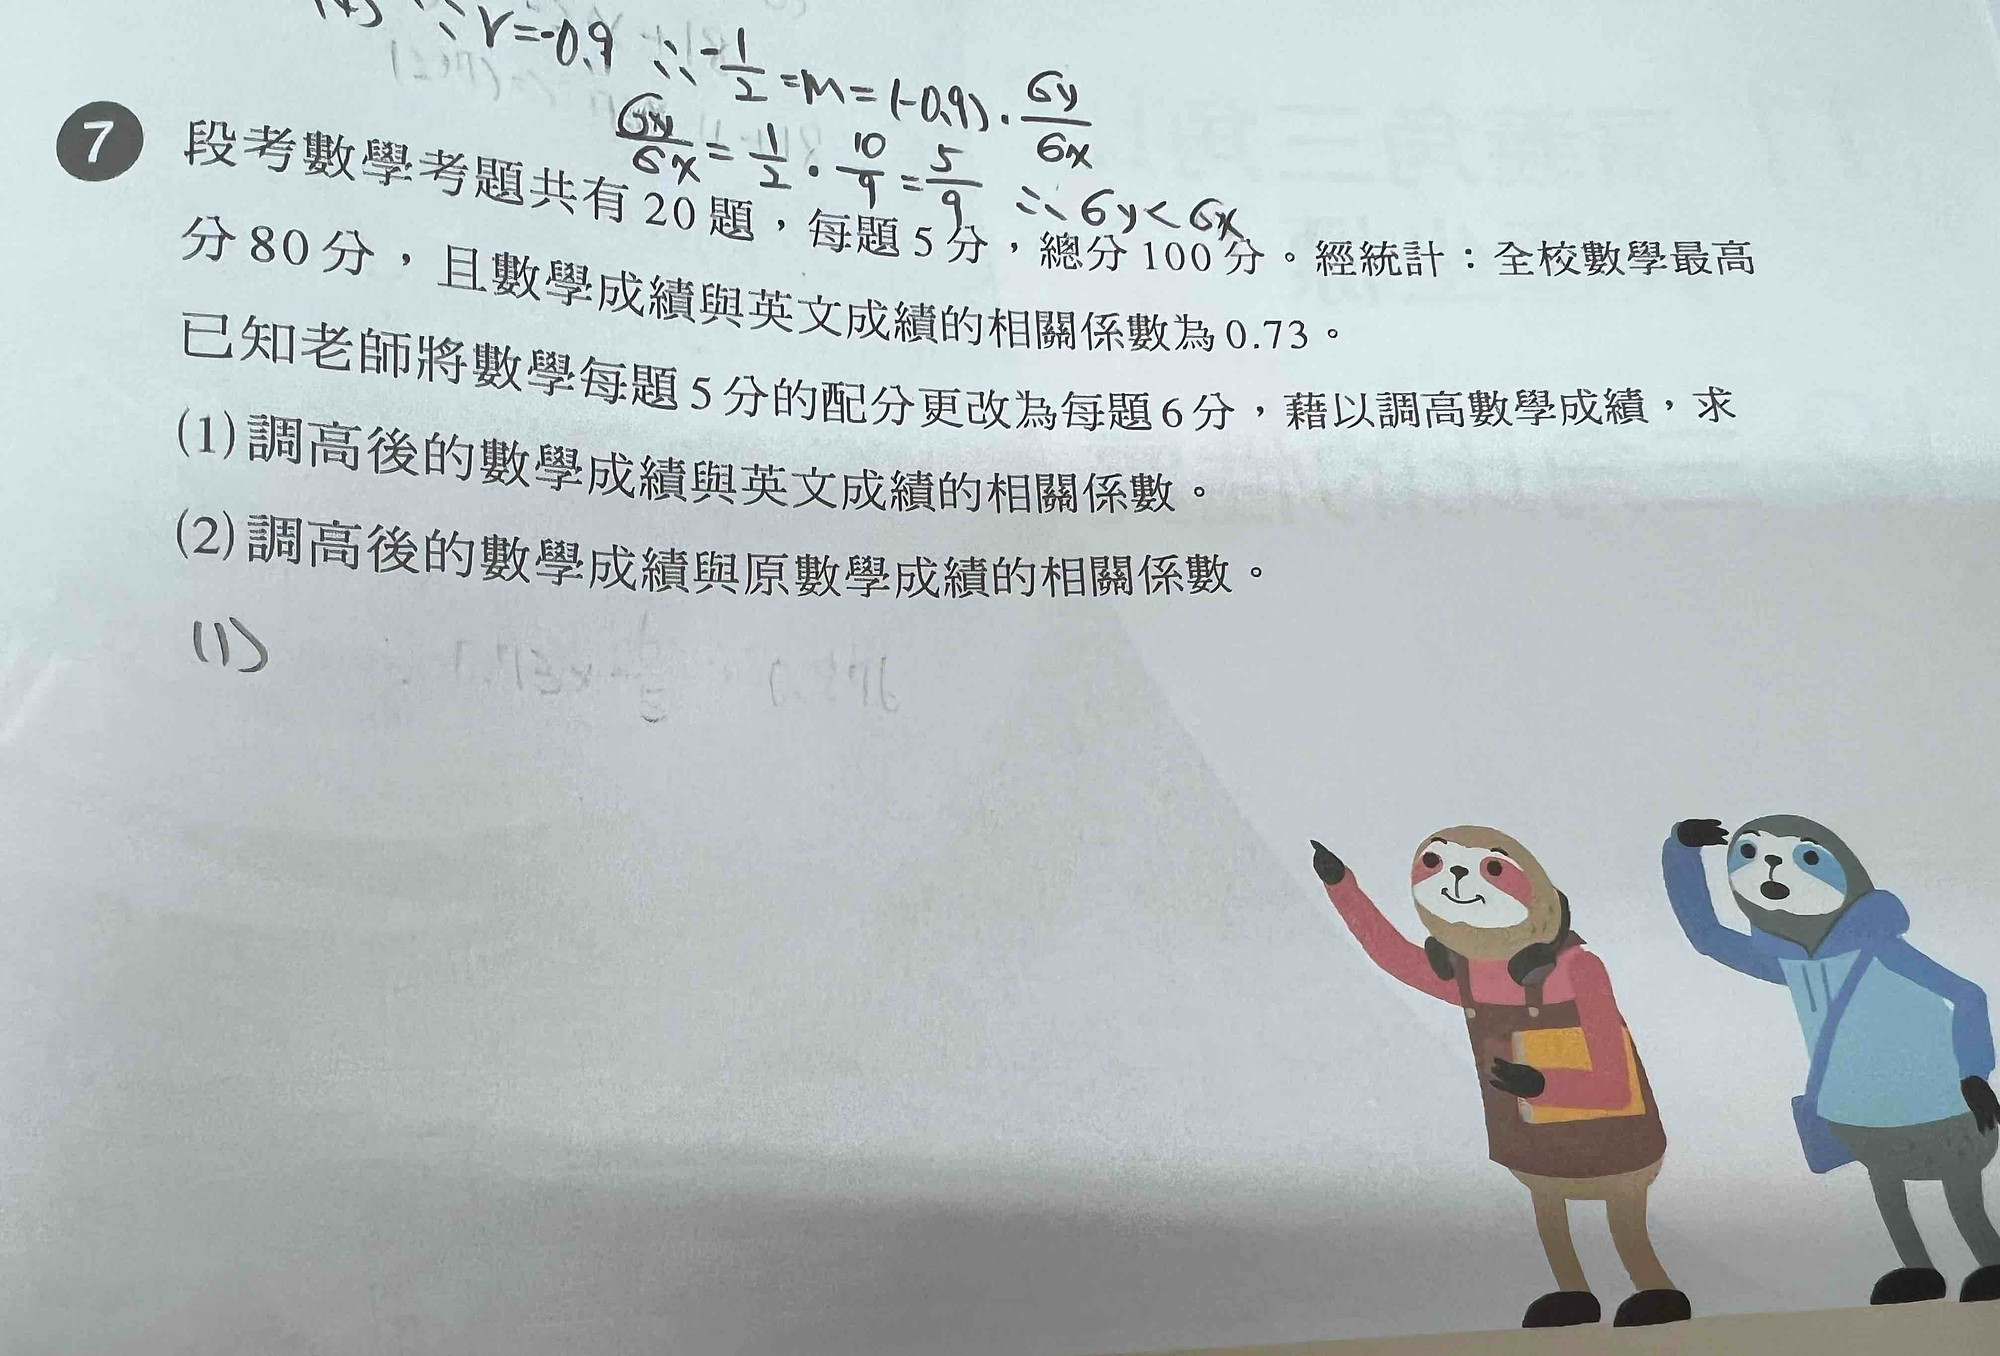 ∵ r=-0.9 ∴ -1/2 = m = (-0.9)·σy/σx
σy/σx = 1/2 · 10/9 = 5/9 ∴ σy < σx
7 段考數學考題共有 20 題，每題 5 分，總分 100 分。經統計：全校數學最高
分 80 分，且數學成績與英文成績的相關係數為 0.73。
已知老師將數學每題 5 分的配分更改為每題 6 分，藉以調高數學成績，求
(1) 調高後的數學成績與英文成績的相關係數。
(2) 調高後的數學成績與原數學成績的相關係數。
(1)